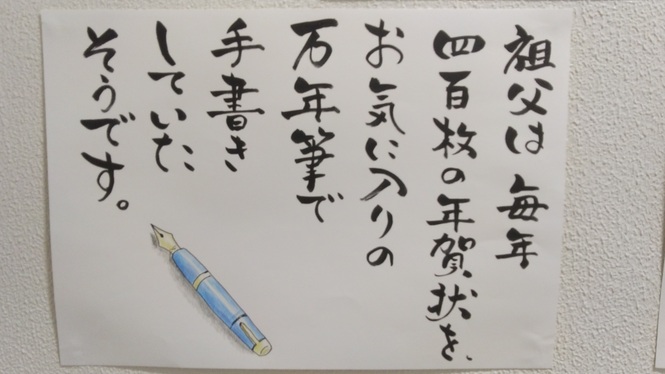 祖父は 毎年
四百枚の年賀状を、
お気に入りの
万年筆で
手書き
していた
そうです。